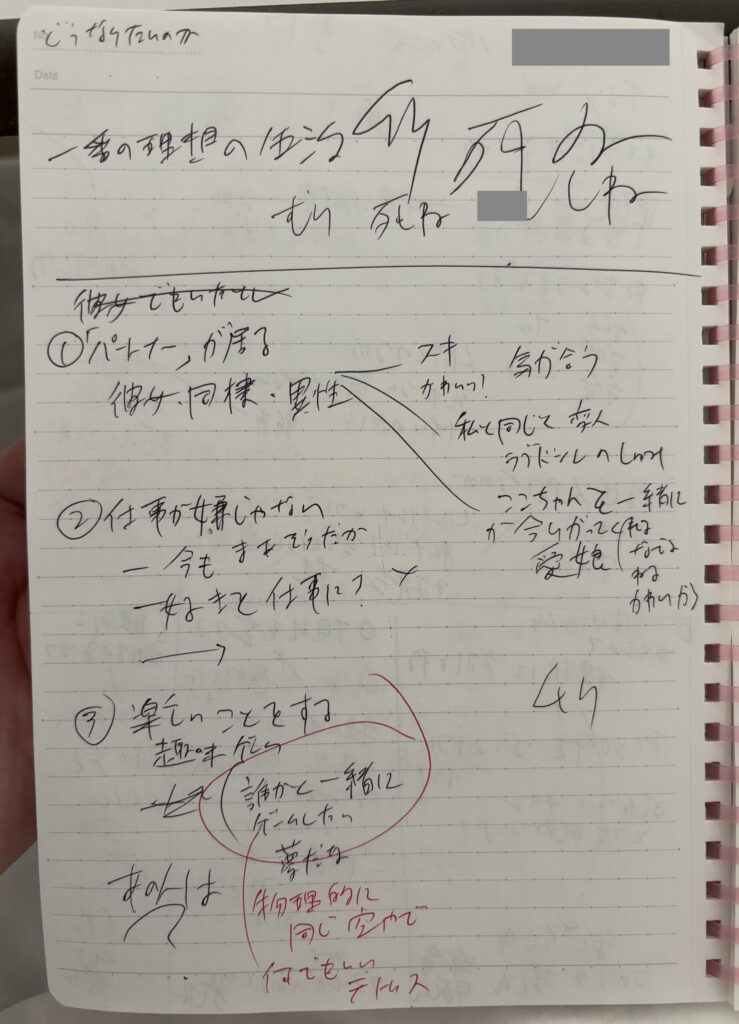 どうなりたいのか
Date
一番の理想の生活
死ね
しね
むり 死ね
彼女でもいたし
①「パートナー」が居る
彼女・同棲・異性
スキ
かわいっ!
気が合う
私と同じで変人
ラブドールの
ここちゃんを一緒に
かわいがってくれる
愛娘
なでる
ねる
かわいがる
②仕事が嫌じゃない
― 今もまあそうだが
― 好きを仕事に?
→
③楽しいことをする
趣味
誰かと一緒に
ゲームしたい
夢だな
物理的に
同じ空やで
何でもいい
テトリス
あのﾉは